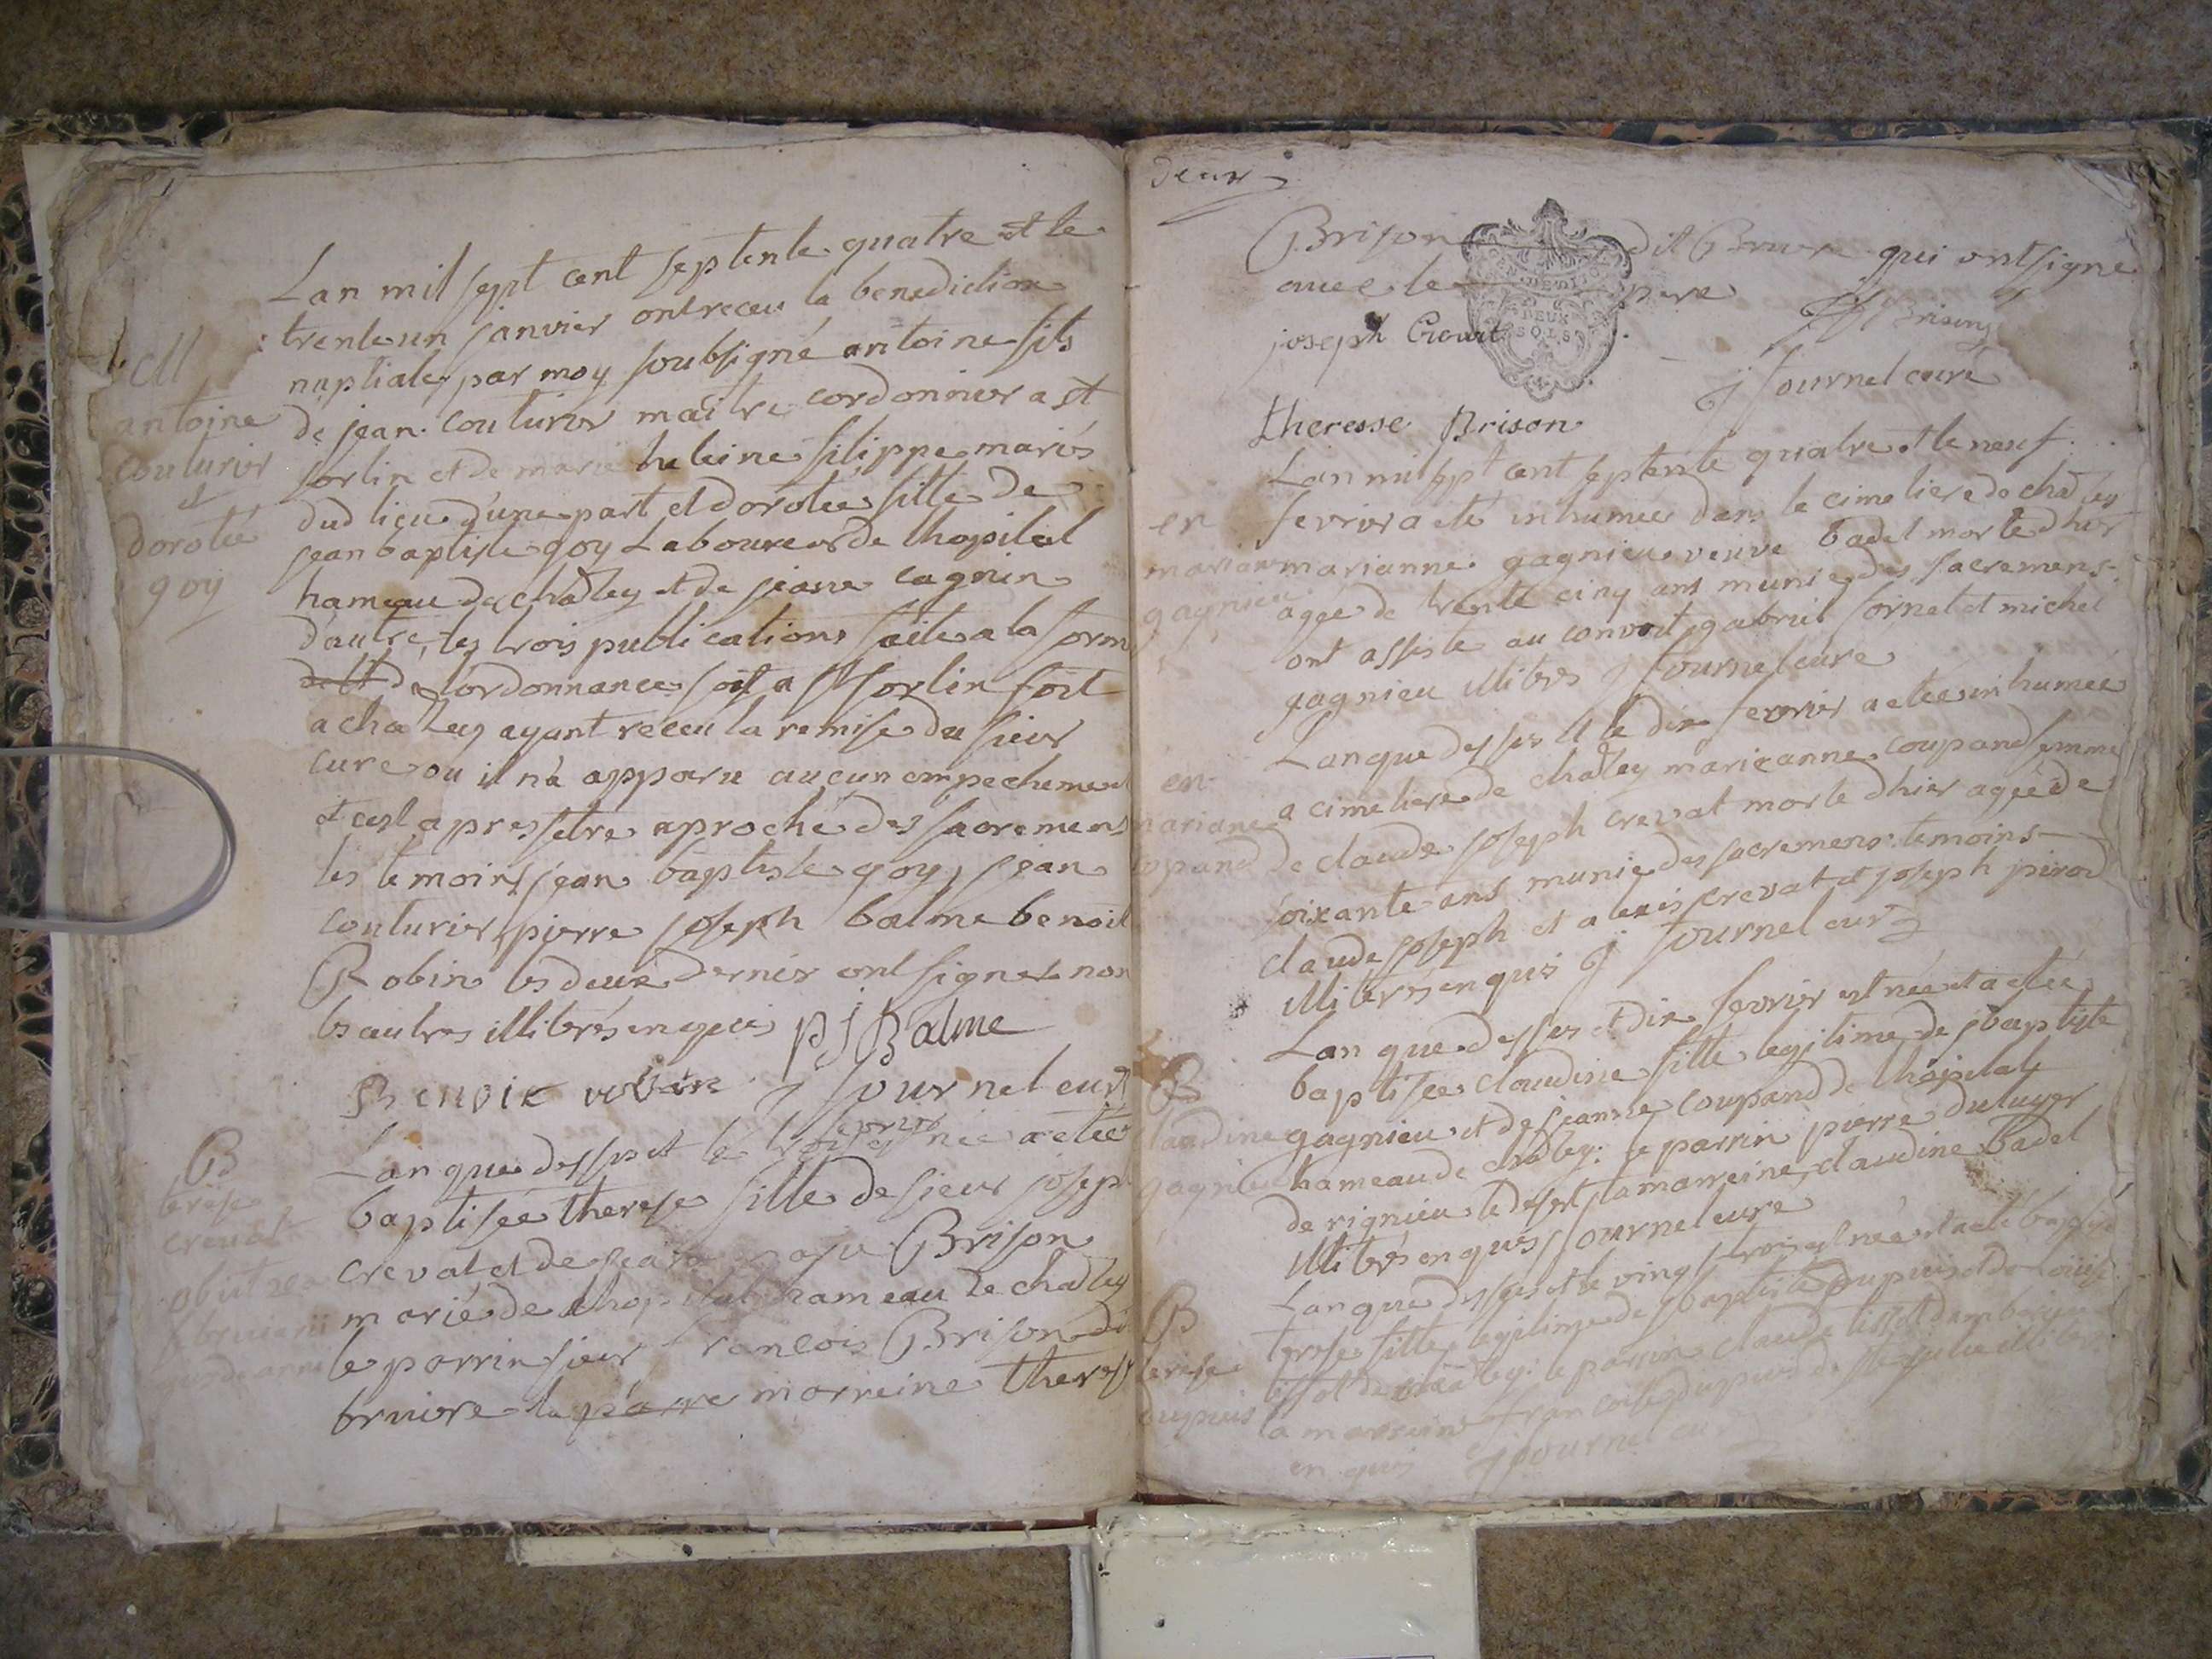 M
antoine
couturier
et
dorotée
goy
Lan mil sept cent septente quatre et le
trenteun janvier ont receu la benediction
nuptiale par moy soubsigné antoine fils
de jean couturier maitre cordonnier a st
sorlin et de marie heleine filippe mariés
dud lieu d'une part et dorotée fille de
jean baptiste goy Laboureur de lhopital
hameau de chaley et de jeane cagnin
d'autre, les trois publications faites a la form
de lordonnance soit a st sorlin soit
a chaley ayant receu la remise du sieur
cure ou il n'a apparu aucun empechement
et cest apres setre aproché des sacremens
les temoins jean baptiste goy, jean
couturier, pierre joseph balme benoit
Robin les deux derniers ont signer non
les autres illitérés enquis pj Balme
Benoit j fournel curé
B
terese
crevat
Lan que dessus et le trois fevrier est née a etée
baptisée therese fille de sieur joseph
crevat et de Brison
marié de lhopital hameau de chaley
le parrin sieur francois Brison di
bruiere la marreine theress
deux
Brison dit qui ont signe
avec le pere
DEUX
SOLS
joseph Crevat
Brison
j fournel curé
theresse Brison
en
mariane
gagnieu
Lan mil sept cent septente quatre et le neuf
fevrier a eté inhumée dans le cimetiere de chaley
marianne gagnieu veuve badel morte dhier
agée de trente cinq ans munie des sacremens
ont assisté au convoit gabriel fornet et michel
gagnieu illitérés j fournel curé
en
mariane
copand
Lan que dessus et le dix fevrier a etée inhumée
a cimetiere de chaley marieanne coupand femme
de claude joseph crevat morte dhier agée de
soixante ans munie des sacremens temoins
claude joseph et alexis crevat et joseph pirod
illiterés enquis j fournel curé
B
claudine
gagnieu
Lan que dessus et dix fevrier est née et a etée
baptisée claudine fille legitime de jbaptiste
gagnieu et de jeanne coupand de lhopital
hameau de chaley: le parrin pierre dutuyer
de rignieu le desert la marreine claudine badel
illitérés enquis fournel curé
B
terese
dupuis
Lan que dessus et le vingt trois est née et a eté baptisé
terese fille legitime de jbaptiste Dupuis et de Louise
tissot de chaley: le parrin claude tissot
la marreine francoise dupuis
en quis j fournel curé